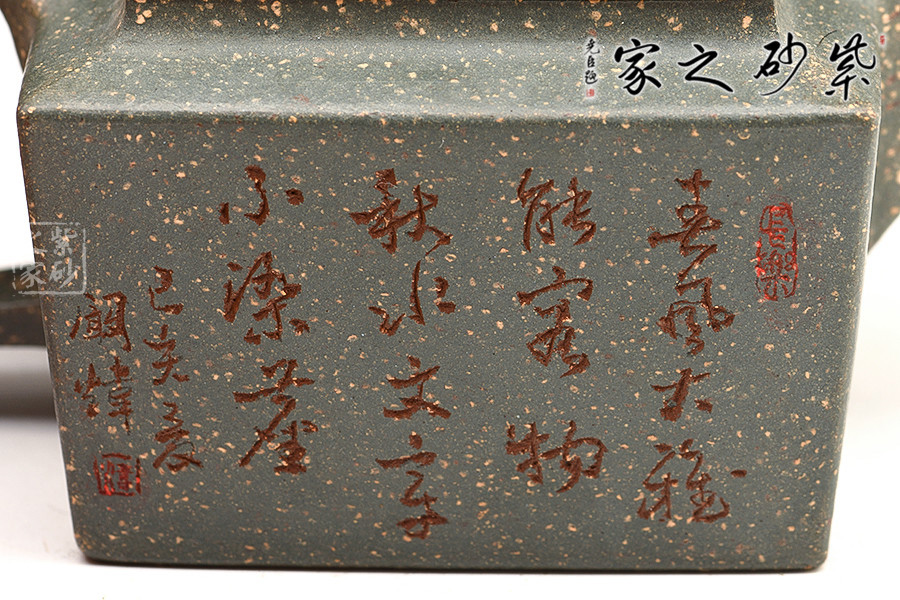 紫砂之家
長樂
春風大雅
能容物
秋水文章
不染塵
己亥夏
煒
紫砂之家